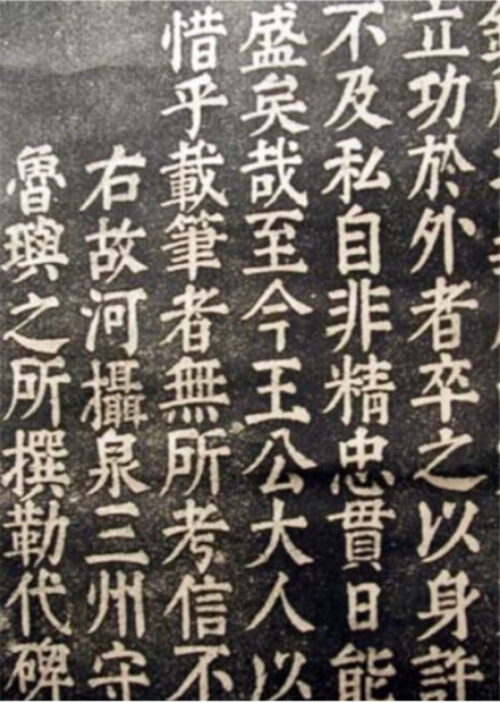 立功於外者卒之以身許
不及私自非精忠貫日能
盛矣哉至今王公大人以
惜乎載筆者無所考信不
右故河攝泉三州守
魯璵之所撰勒代碑